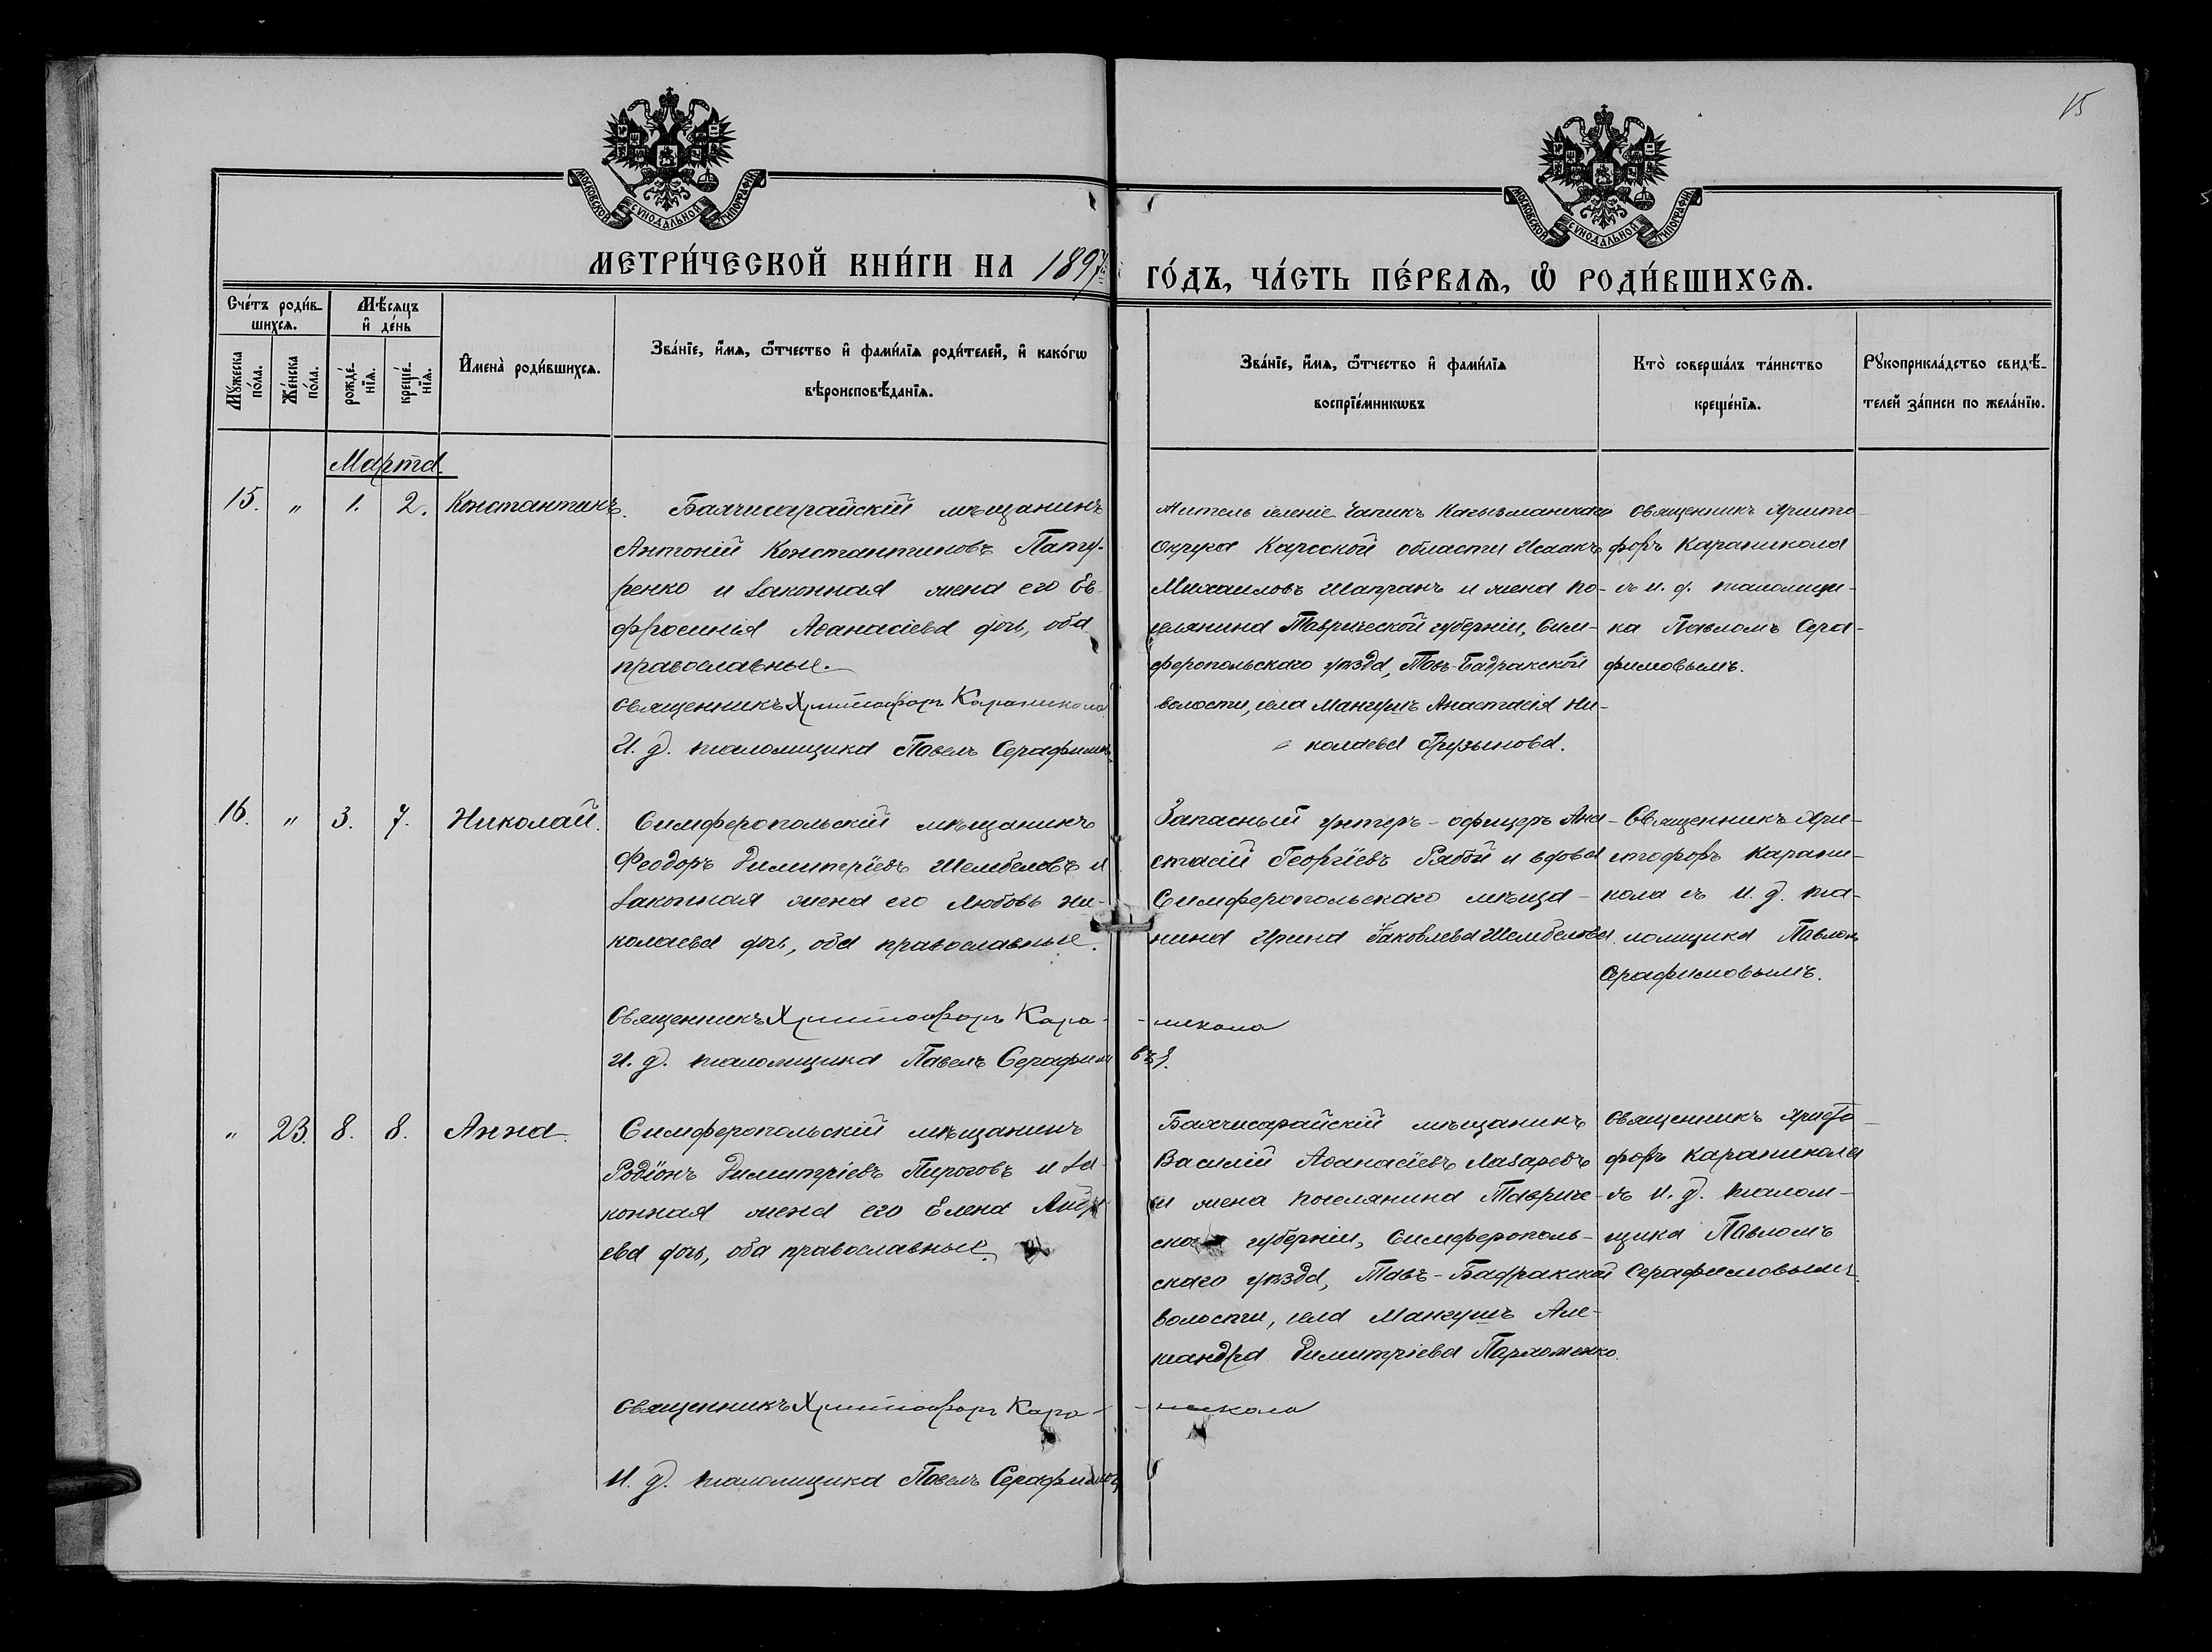 15
МОСКОВСКОЙ СѴНОДАЛЬНОЙ ТИПОГРАФІИ
МОСКОВСКОЙ СѴНОДАЛЬНОЙ ТИПОГРАФІИ
МЕТРИ́ЧЕСКОЙ КНИ́ГИ НА 1897 ГО́ДЪ, ЧА́СТЬ ПЕ́РВАѦ, Ѡ҆ РОДИ́ВШИХСѦ.
Сче́тъ роди́в-
шихсѧ.
Мѣ́сѧцъ
и҆ де́нь
Мꙋ́жеска
по́ла.
Же́нска
по́ла.
рожде́-
нїѧ.
креще́-
нїѧ.
И҆мена̀ роди́вшихсѧ.
Зва́нїе, и҆́мѧ, ѻ҆́тчество и҆ фами́лїѧ роди́телей, и҆ како́гѡ
вѣроисповѣ́данїѧ.
Зва́нїе, и҆́мѧ, ѻ҆́тчество и҆ фами́лїѧ
воспрїе́мникѡвъ
Кто̀ соверша́лъ та́инство
креще́нїѧ.
Рꙋкоприкла́дство свидѣ́-
телей за́писи по жела́нїю.
Марта.
15. " 1. 2. Константинъ.
Бахчисарайскій мѣщанинъ
Антоній Константиновъ Пату-
ренко и законная жена его Ев-
фросинія Аѳанасіева дочь, оба
православные.
Священникъ Христофоръ Караникола
И. д. псаломщика Павелъ Серафимовъ
Житель селенія Чапикъ Кагызманскаго
Округа Карсской области Исаакъ
Михаиловъ Шапранъ и жена по-
селянина Таврической губерніи, Сим-
феропольскаго уѣзда, Тавъ-Бадракской
волости, села Мангушъ Анастасія Ни-
колаева Грузынова.
Священникъ Христо-
форъ Караникола
съ и. д. псаломщи-
ка Павломъ Сера-
фимовымъ.
16. " 3. 7. Николай.
Симферопольскій мѣщанинъ
Феодоръ Димитріевъ Шембеловъ и
законная жена его Любовь Ни-
колаева дочь, оба православные.
Священникъ Христофоръ Кара-
- никола
И. д. псаломщика Павелъ Серафимовъ
Запасный унтеръ-офицеръ Ана-
стасій Георгіевъ Рябой и вдова
Симферопольскаго мѣща-
нина Ирина Іаковлева Шембелова.
Священникъ Хри-
стофоръ Карани-
кола съ и. д. пса-
ломщика Павломъ
Серафимовымъ.
" 23. 8. 8. Анна.
Симферопольскій мѣщанинъ
Родіонъ Димитріевъ Пироговъ и за-
конная жена его Елена Андре-
ева дочь, оба православные.
Священникъ Христофоръ Кара-
- никола
И. д. псаломщика Павелъ Серафимовъ
Бахчисарайскій мѣщанинъ
Василій Аѳанасіевъ Лазаревъ
и жена поселянина Тавриче-
ской губерніи, Симферополь-
скаго уѣзда, Тавъ-Бадракской
волости, села Мангушъ Але-
ксандра Димитріева Пархоменко.
Священникъ Христо-
форъ Караникола
съ и. д. псалом-
щика Павломъ
Серафимовымъ.